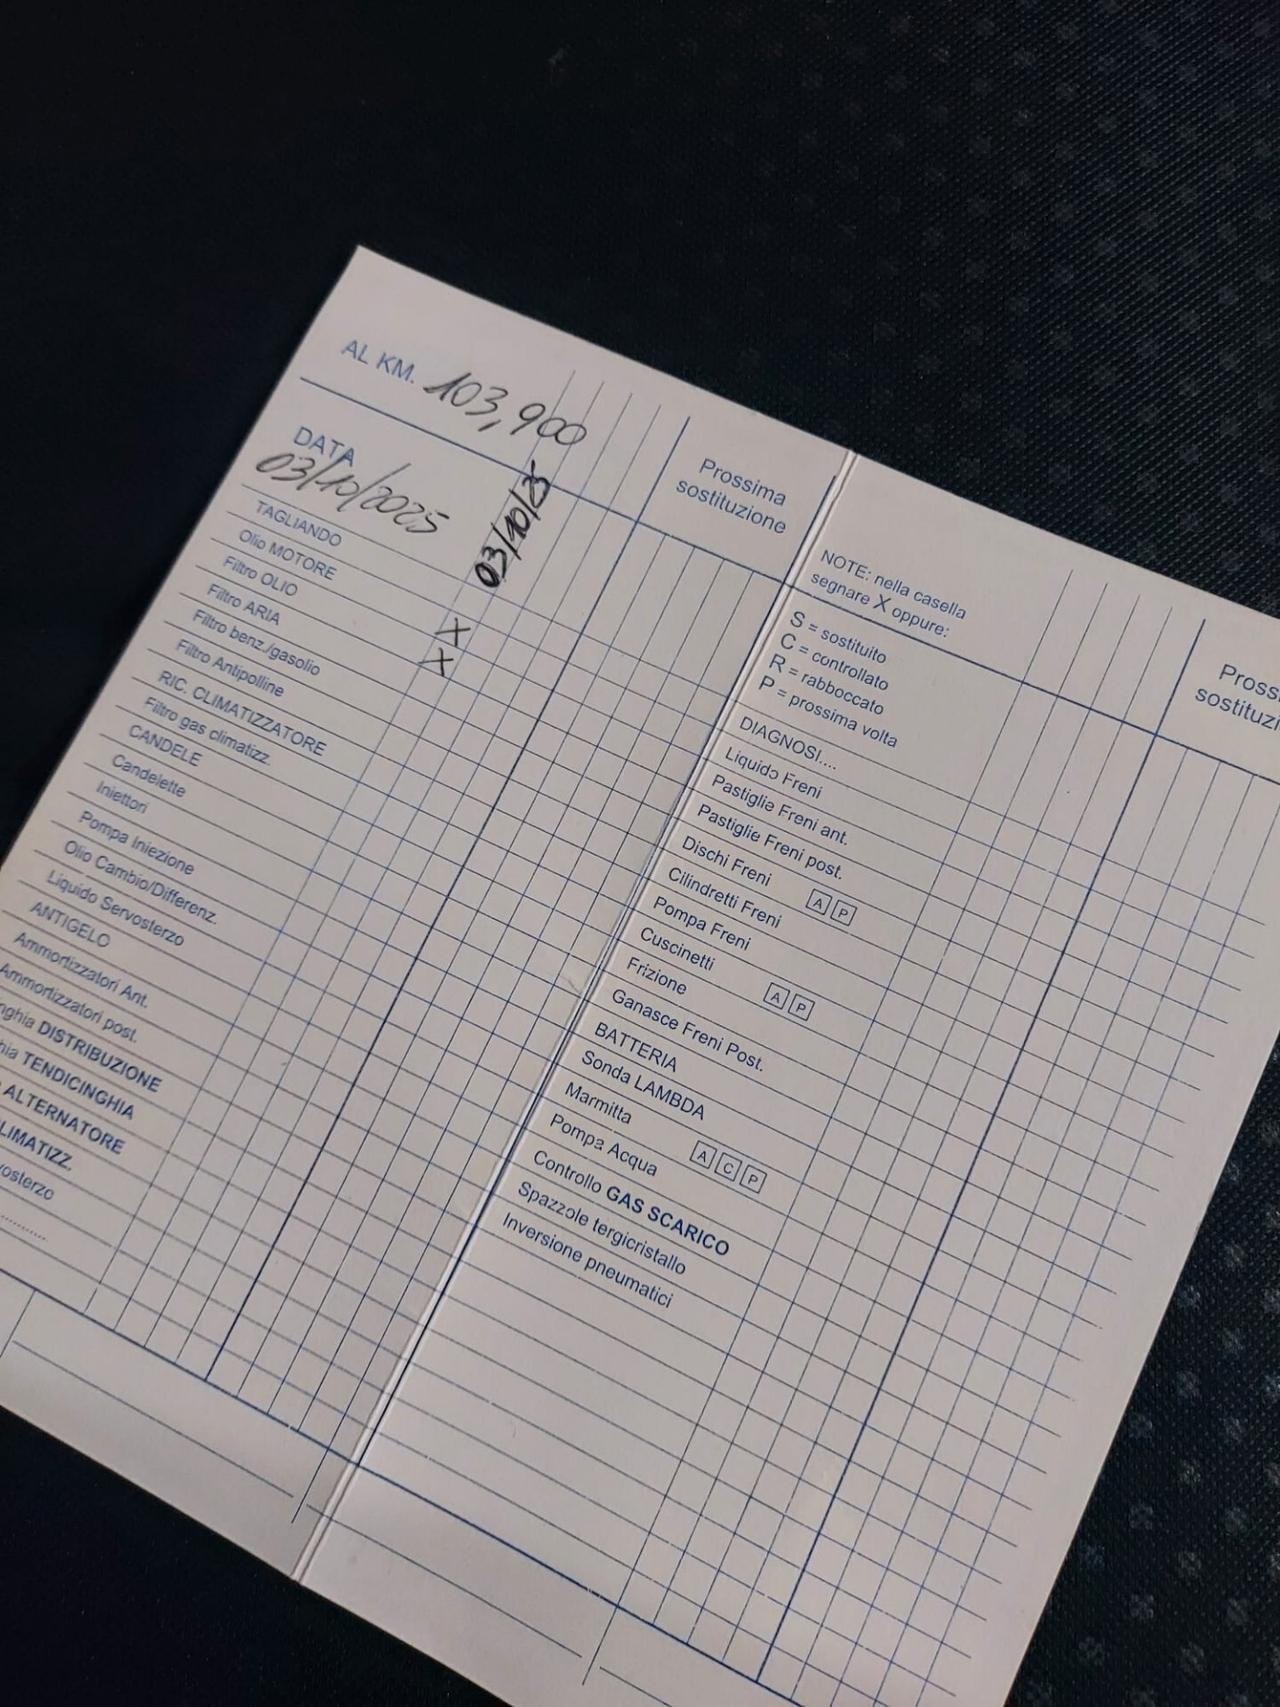 AL KM. 103,900
DATA
03/10/2025
03/10/25
Prossima
sostituzione
TAGLIANDO
Olio MOTORE
Filtro OLIO X
Filtro ARIA X
Filtro benz./gasolio
Filtro Antipolline
RIC. CLIMATIZZATORE
Filtro gas climatizz.
CANDELE
Candelette
Iniettori
Pompa Iniezione
Olio Cambio/Differenz.
Liquido Servosterzo
ANTIGELO
Ammortizzatori Ant.
Ammortizzatori post.
nghia DISTRIBUZIONE
hia TENDICINGHIA
ALTERNATORE
LIMATIZZ.
osterzo
NOTE: nella casella
segnare X oppure:
S = sostituito
C = controllato
R = rabboccato
P = prossima volta
Pross
sostituzi
DIAGNOSI....
Liquido Freni
Pastiglie Freni ant.
Pastiglie Freni post.
Dischi Freni A P
Cilindretti Freni
Pompa Freni
Cuscinetti A P
Frizione
Ganasce Freni Post.
BATTERIA
Sonda LAMBDA
Marmitta A C P
Pompa Acqua
Controllo GAS SCARICO
Spazzole tergicristallo
Inversione pneumatici